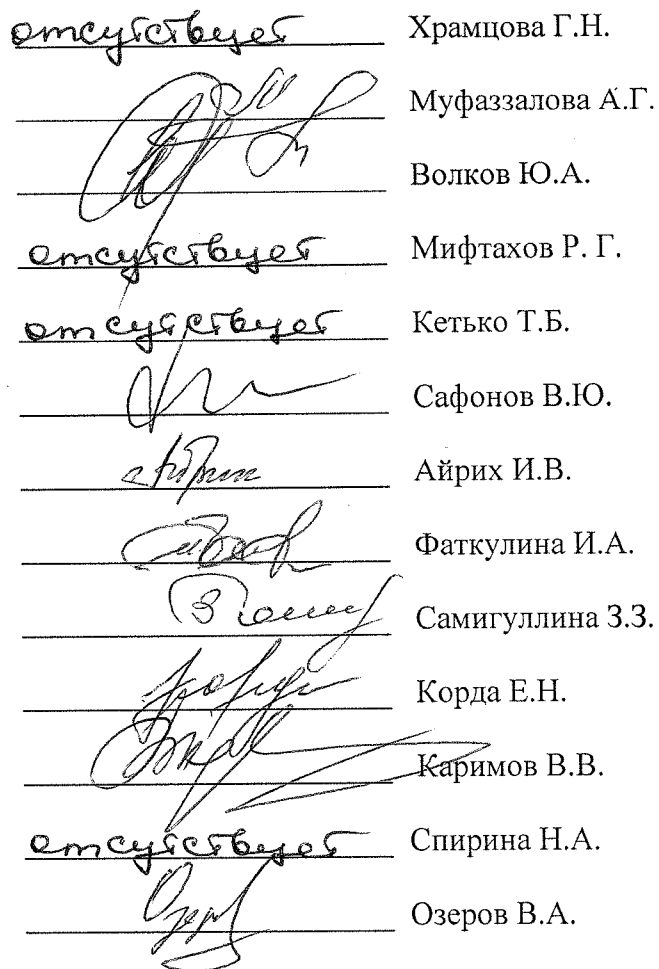 отсутствует Храмцова Г.Н.
Муфаззалова А.Г.
Волков Ю.А.
отсутствует Мифтахов Р. Г.
отсутствует Кетько Т.Б.
Сафонов В.Ю.
Айрих И.В.
Фаткулина И.А.
Самигуллина З.З.
Корда Е.Н.
Каримов В.В.
отсутствует Спирина Н.А.
Озеров В.А.